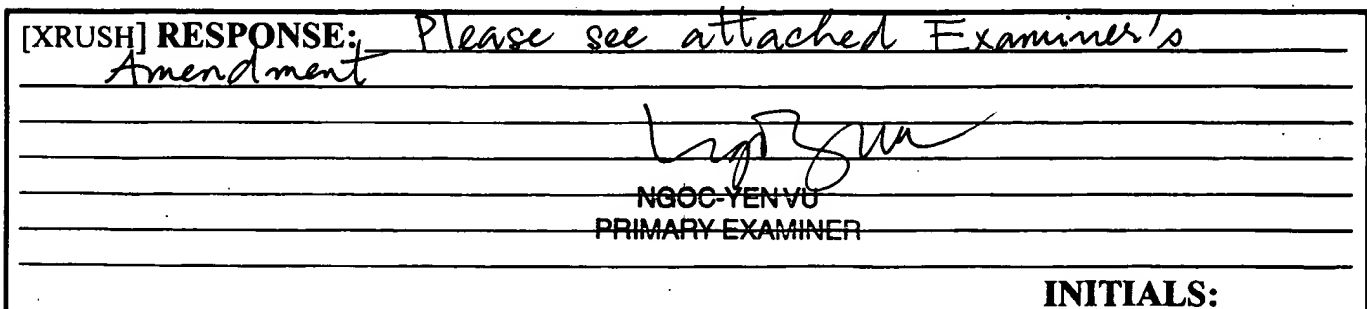 [XRUSH] RESPONSE: Please see attached Examiner's
Amendment
NGOC-YEN VU
PRIMARY EXAMINER
INITIALS: